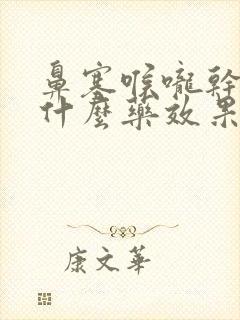 鼻塞喉嚨幹
什麼藥效果
康文華